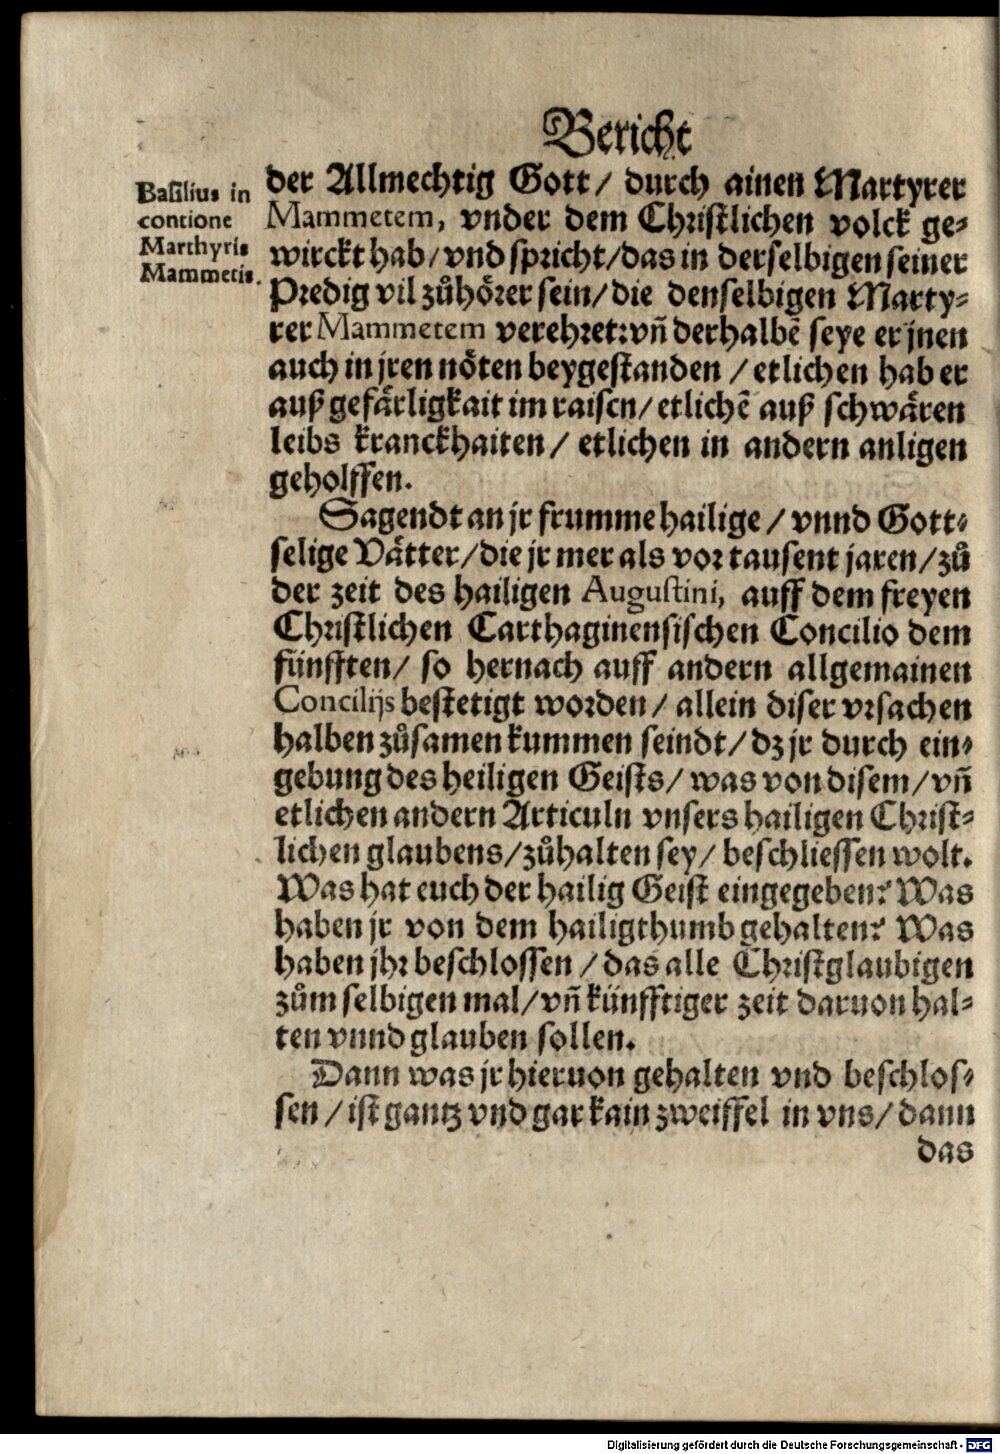 Bericht
Basilius in
contione
Marthyris
Mammetis.
der Allmechtig Gott/ durch ainen Martyrer
Mammetem, vnder dem Christlichen volck ge⸗
wirckt hab/ vnd spricht/ das in derselbigen seiner
Predig vil zůhörer sein/ die denselbigen Marty⸗
rer Mammetem verehret: vñ derhalbẽ seye er jnen
auch in jren nöten beygestanden / etlichen hab er
auß gefärligkait im raisen/ etlichẽ auß schwären
leibs kranckhaiten/ etlichen in andern anligen
geholffen.
Sagendt an jr frumme hailige / vnnd Gott⸗
selige Vätter/ die jr mer als vor tausent jaren/ zů
der zeit des hailigen Augustini, auff dem freyen
Christlichen Carthaginensischen Concilio dem
fünfften/ so hernach auff andern allgemainen
Concilijs bestetigt worden/ allein diser vrsachen
halben zůsamen kummen seindt/ dz jr durch ein⸗
gebung des heiligen Geists/ was von disem/ vñ
etlichen andern Articuln vnsers hailigen Christ⸗
lichen glaubens/ zůhalten sey/ beschliessen wolt.
Was hat euch der hailig Geist eingegeben? Was
haben jr von dem hailigthumb gehalten? Was
haben jhr beschlossen / das alle Christglaubigen
zům selbigen mal/ vñ künfftiger zeit daruon hal⸗
ten vnnd glauben sollen.
Dann was jr hieruon gehalten vnd beschlos⸗
sen / ist gantz vnd gar kain zweiffel in vns/ dann
das
Digitalisierung gefördert durch die Deutsche Forschungsgemeinschaft - DFG